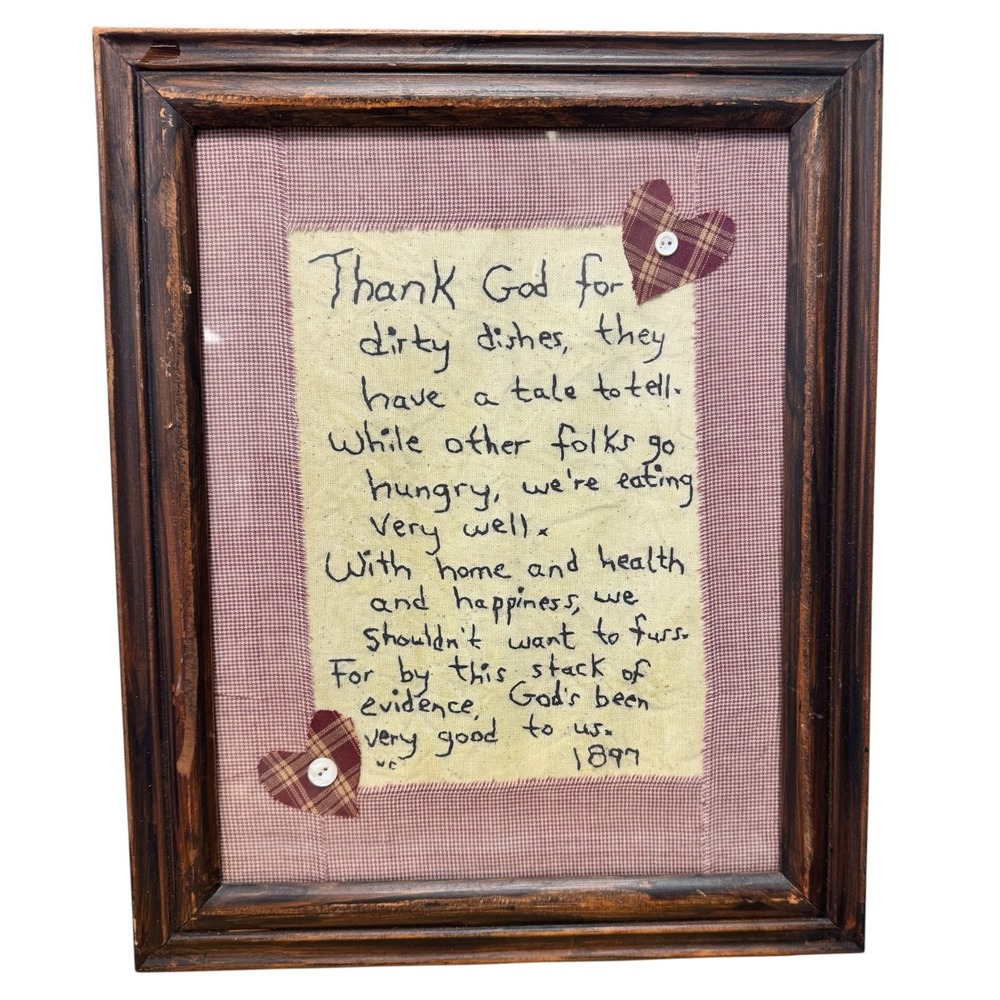 Thank God for
dirty dishes, they
have a tale to tell.
While other folks go
hungry, we're eating
very well.
With home and health
and happiness, we
shouldn't want to fuss.
For by this stack of
evidence, God's been
very good to us.
1897